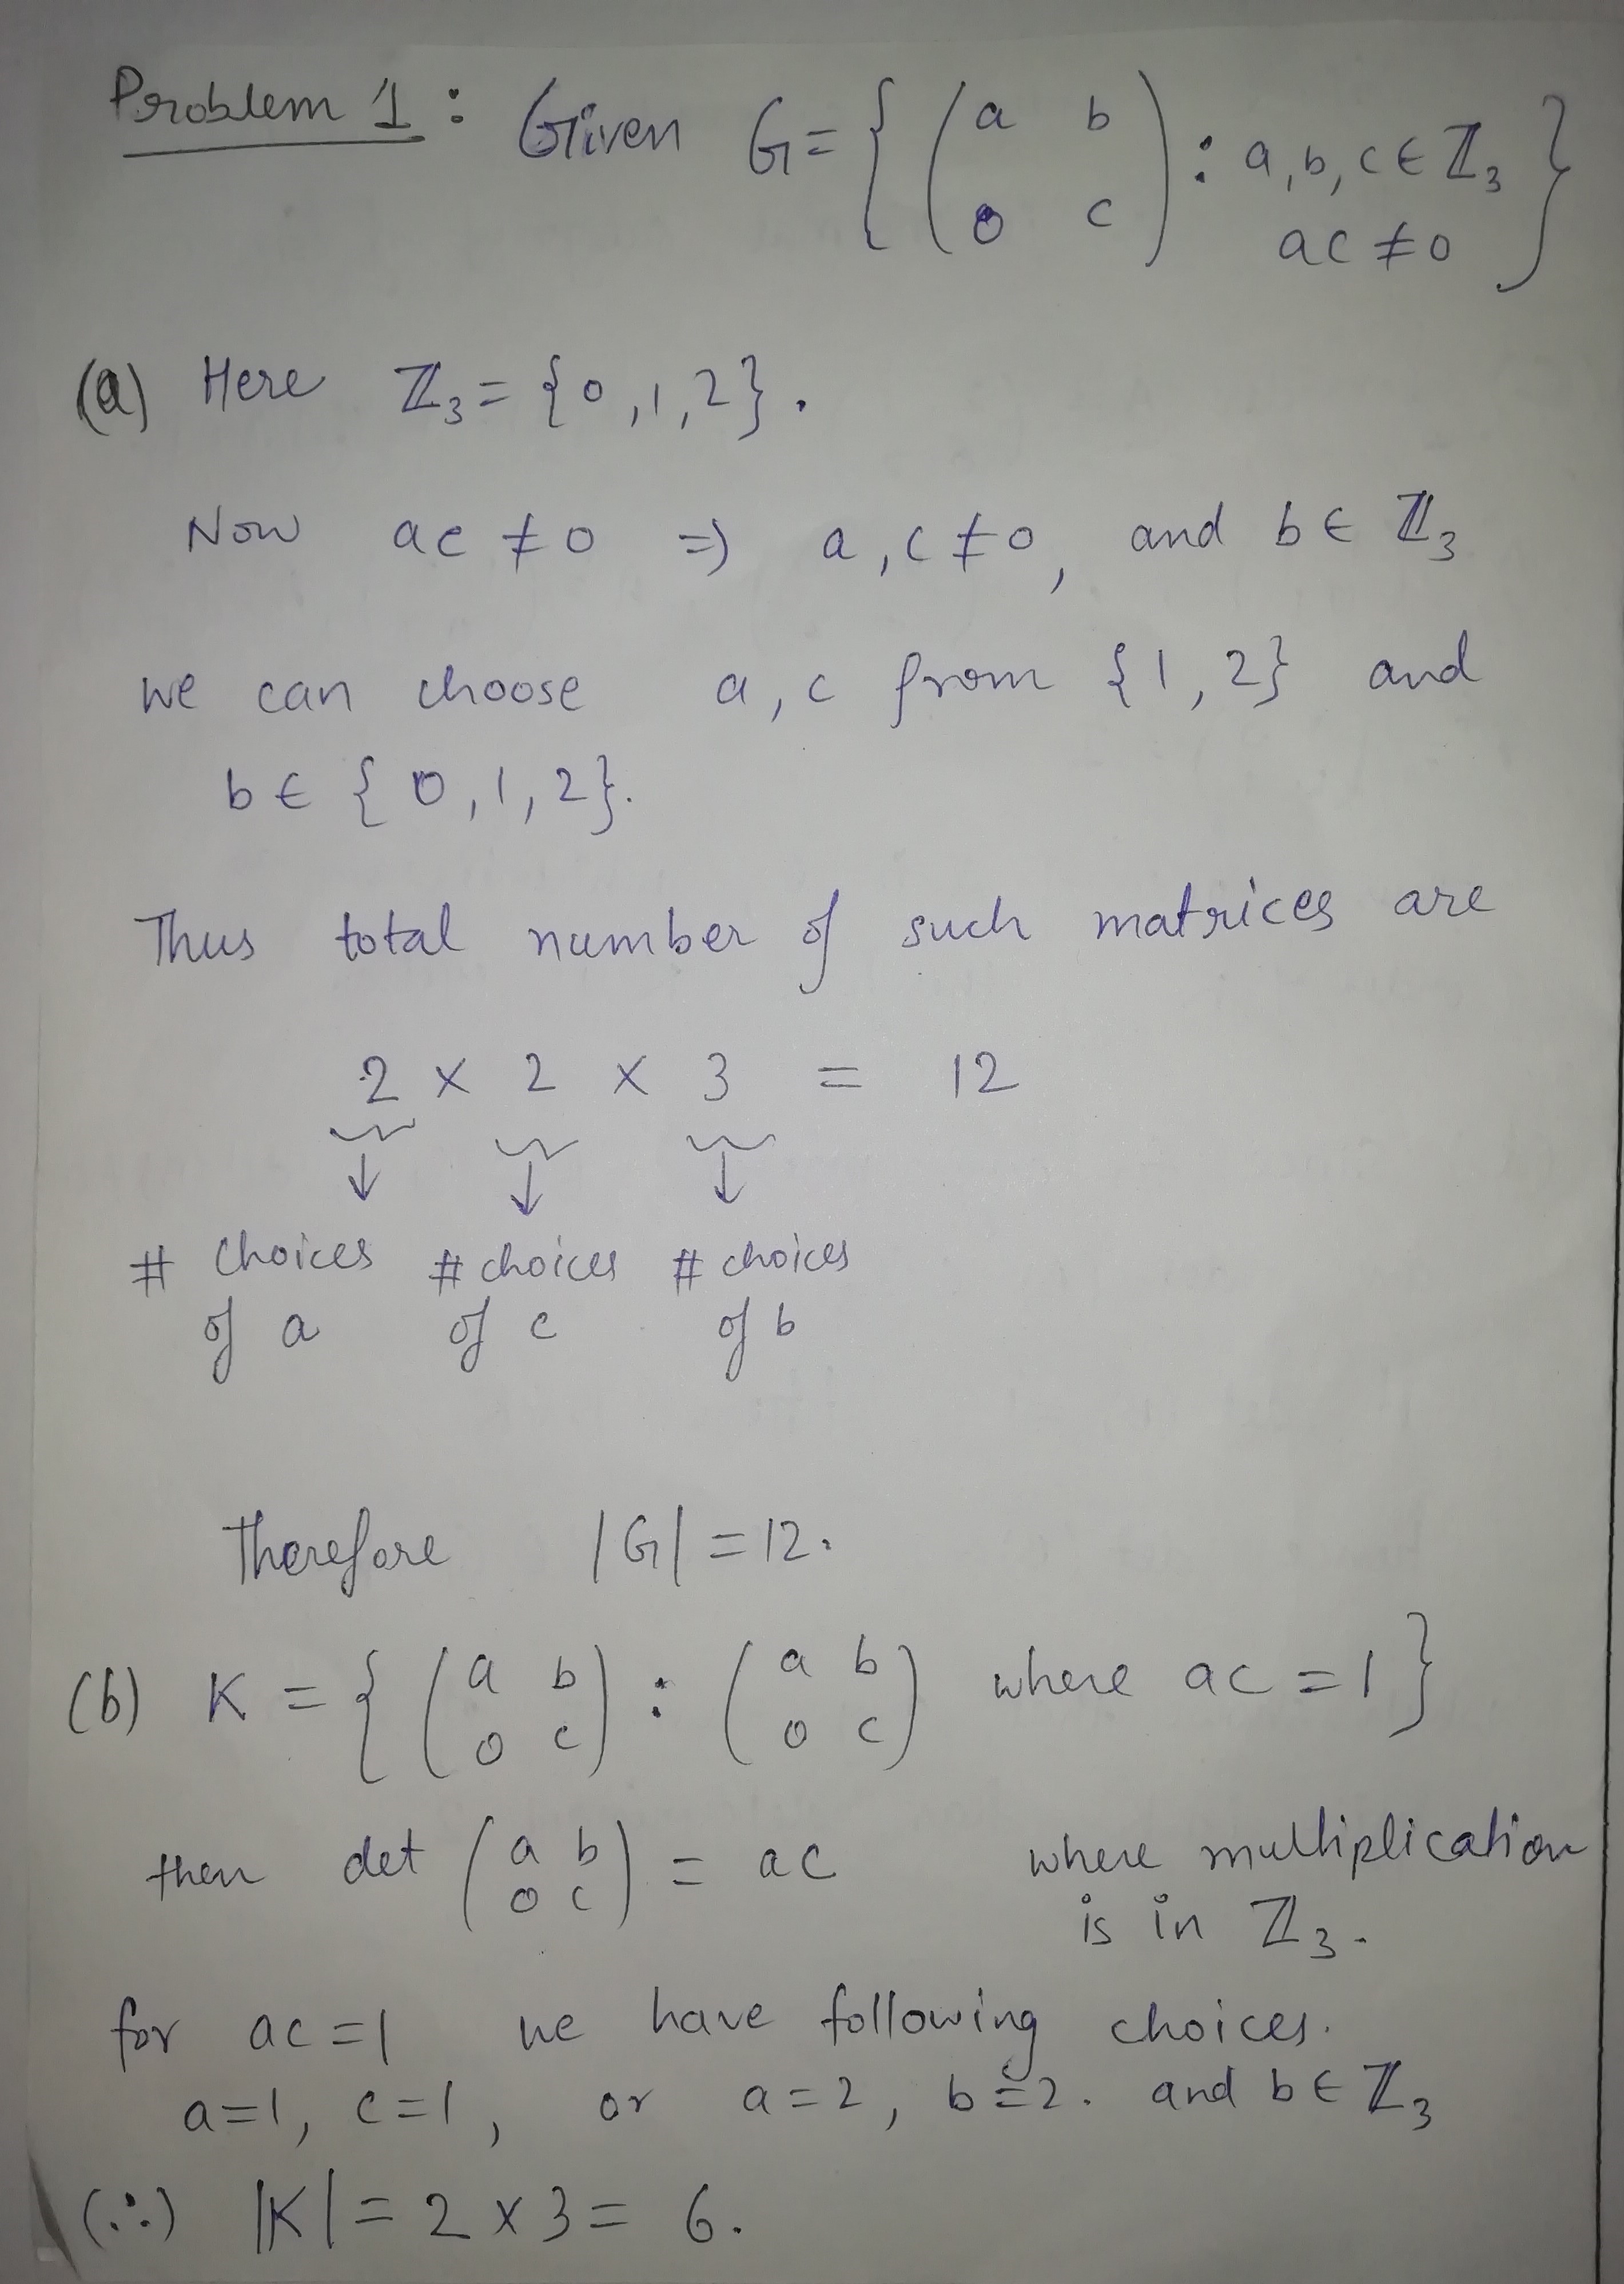 Problem 1 : Given G = { ( a b
0 c ) : a, b, c ∈ ℤ₃
ac ≠ 0 }
(a) Here ℤ₃ = {0, 1, 2}.
Now ac ≠ 0 ⇒ a, c ≠ 0, and b ∈ ℤ₃
we can choose a, c from {1, 2} and
b ∈ {0, 1, 2}.
Thus total number of such matrices are
2 × 2 × 3 = 12
↓ ↓ ↓
# Choices # choices # choices
of a of c of b
Therefore |G| = 12.
(b) K = { ( a b
0 c ) : ( a b
0 c ) where ac = 1 }
then det ( a b
0 c ) = ac where multiplication
is in ℤ₃.
for ac = 1 we have following choices.
a = 1, c = 1, or a = 2, b = 2. and b ∈ ℤ₃
(∴) |K| = 2 × 3 = 6.